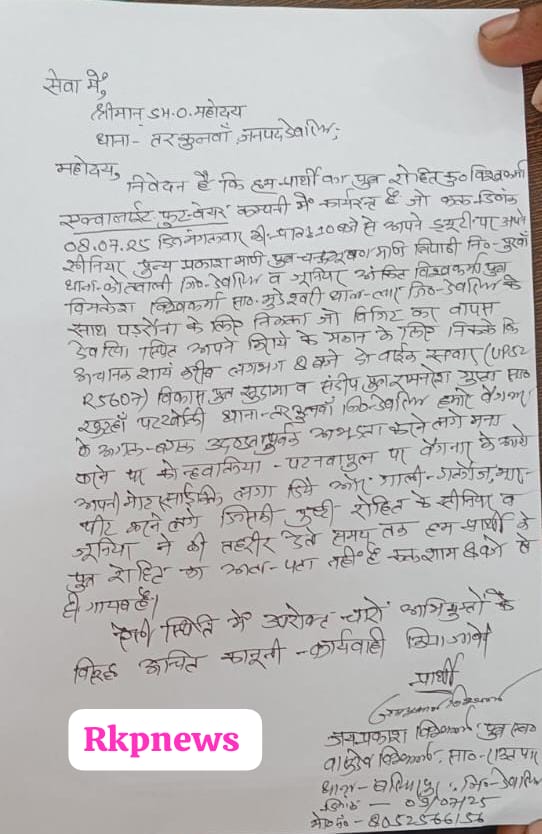 सेवा में,
श्रीमान् S.H.O. महोदय
थाना- तरकुलवाँ, जनपद देवरिया,
महोदय,
निवेदन है कि हम प्रार्थी का पुत्र रोहित कु० विश्वकर्मा
एक्वालाईट फुट-वेयर कम्पनी में कार्यरत है जो कल दिनांक
08.07.25 दिन मंगलवार को प्रातः 10 बजे से अपने ड्यूटी पर अपने
सीनियर पुन्य प्रकाश मणि पुत्र चन्द्रभूषण मणि त्रिपाठी नि०-
थाना-कोतवाली जि०-देवरिया व जूनियर अंकित विश्वकर्मा पुत्र
विमलेश विश्वकर्मा सा० मुंडेश्वरी थाना-लार जि०-देवरिया के
साथ पडरौना के लिए निकला जो विजिट कर वापस
देवरिया स्थित अपने किराये के मकान के लिए निकले कि
अचानक शायं करीब लगभग 8 बजे दो बाईक सवार (UP52
R5607) विकास पुत्र सुदामा व संदीप पुत्र रामनरेश गुप्ता सा०
थाना-तरकुलवाँ जि०-देवरिया हमारे वैगनार
के अगल-बगल उदण्डतापूर्वक अभद्रता करने लगे मना
करने पर कोन्हवलिया-पटनवापुल पर वैगनार के आगे
अपनी मोटरसाईकिल लगा दिये और गाली-गलौज, मार-
पीट करने लगे जिसकी रोहित के सीनियर व
जूनियर ने दी तहरीर देते समय तक हम प्रार्थी के
पुत्र रोहित का अता-पता नहीं है कल शाम 8 बजे से
ही गायब है।
ऐसी स्थिति में उपरोक्त चारो अभियुक्तों के
विरुद्ध उचित कानूनी-कार्यवाही किया जावे।
प्रार्थी
जयप्रकाश विश्वकर्मा पुत्र स्व०
वासुदेव विश्वकर्मा, सा०-
थाना- जि०-देवरिया
दिनांक - 09/07/25
मो०नं०-8052566156
Rkpnews